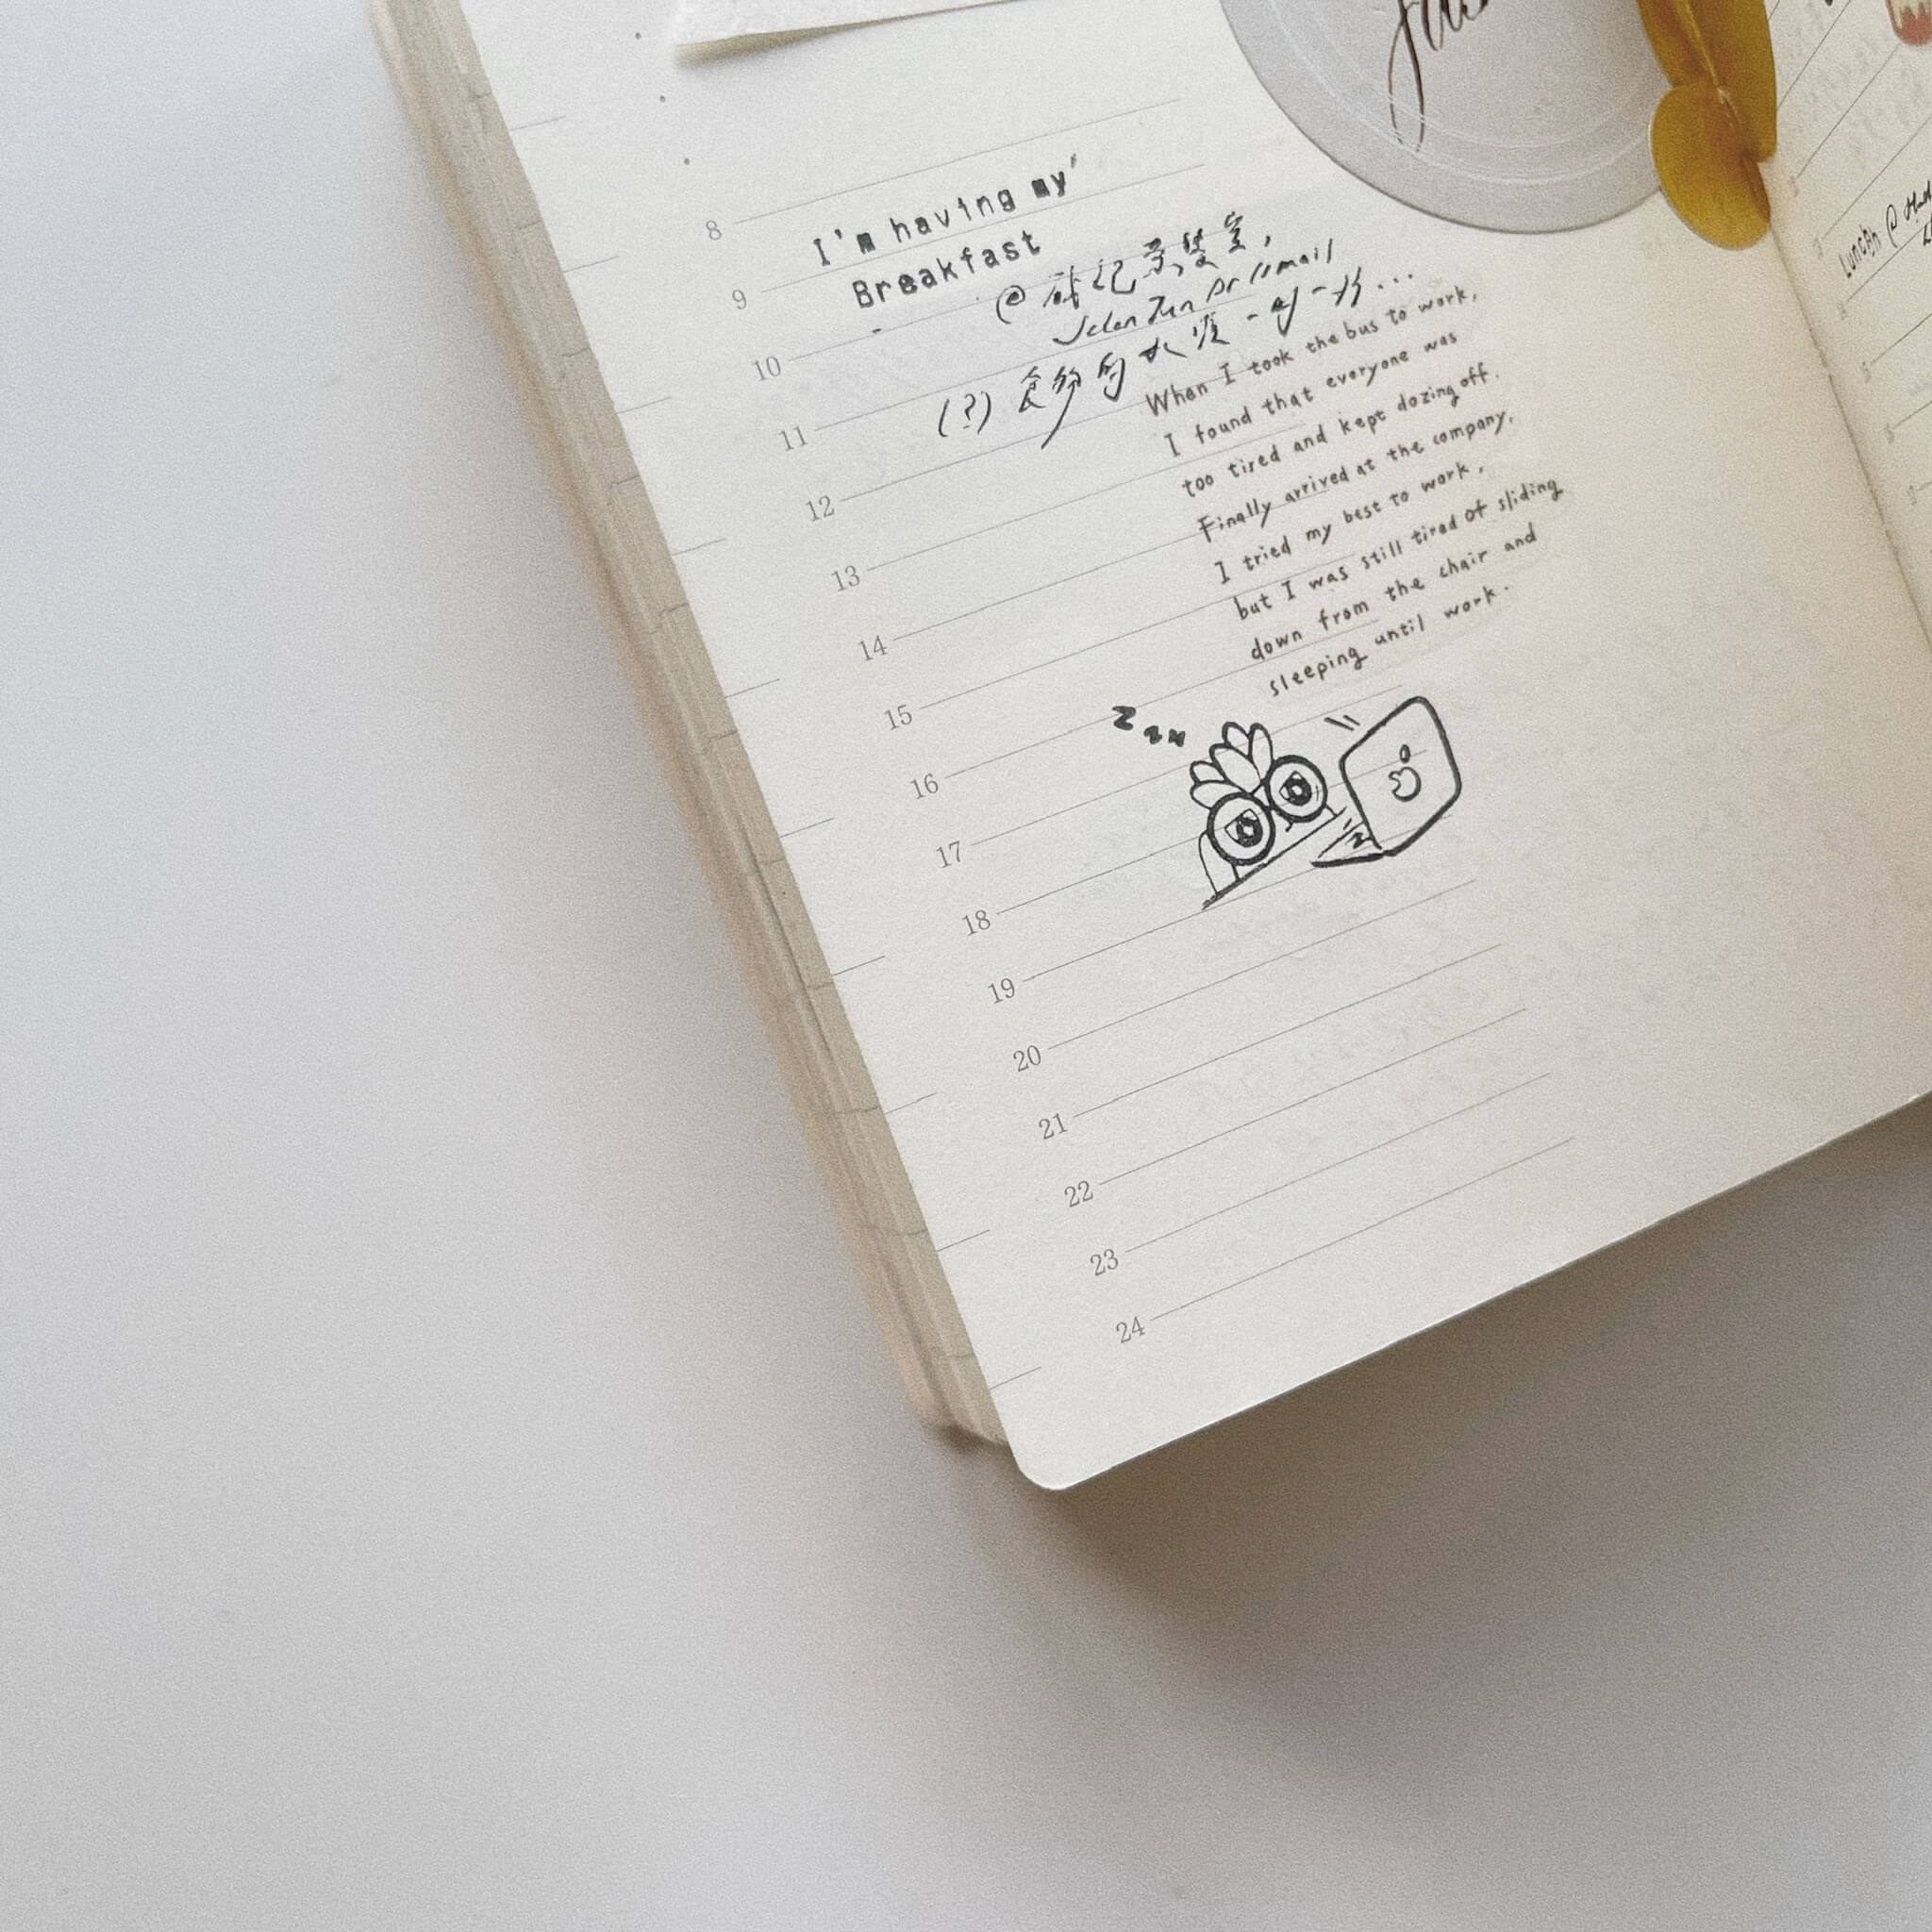 8
I'm having my
9
Breakfast
@ 記茶餐室,
10
Jalan Tun Dr Ismail
11
(?) 食物
12
When I took the bus to work,
I found that everyone was
too tired and kept dozing off.
Finally arrived at the company,
I tried my best to work,
but I was still tired of sliding
down from the chair and
sleeping until work.
13
14
15
zzz
16
17
18
19
20
21
22
23
24
Lunch @